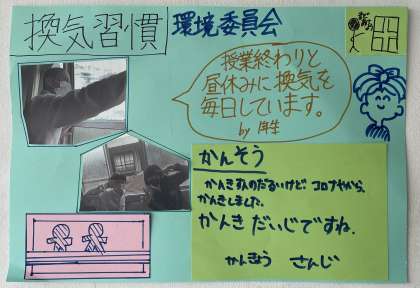 換気習慣
環境委員会
授業終わりと
昼休みに換気を
毎日しています。
by
かんそう
かんきすんのだるいけど コロナやから、
かんきしました。
かんき だいじですね.
かんきょう さんじ